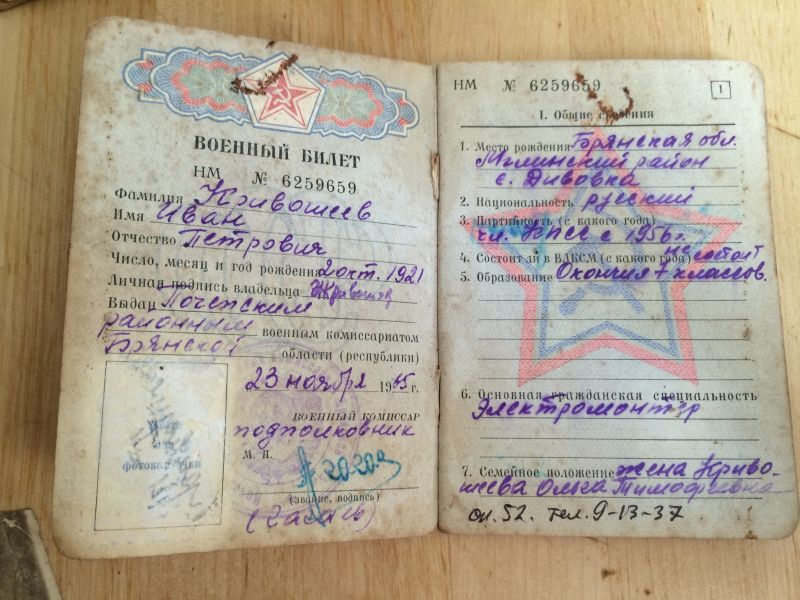 ВОЕННЫЙ БИЛЕТ
НМ № 6259659
Фамилия Кривошеев
Имя Иван
Отчество Петрович
Число, месяц и год рождения 2 окт. 1921
Личная подпись владельца
Выдан Почепским
районным военным комиссариатом
Брянской области (республики)
23 ноября 1965 г.
ВОЕННЫЙ КОМИССАР
подполковник
М. П.
(звание, подпись)
Место
для
фотокарточки
НМ № 6259659
1
I. Общие сведения
1. Место рождения Брянская обл.
Мглинский район
с. Дивовка
2. Национальность русский
3. Партийность (с какого года)
чл. КПСС с 1956 г.
4. Состоит ли в ВЛКСМ (с какого года) не состоит
5. Образование Окончил 7 классов.
6. Основная гражданская специальность
Электромонтёр
7. Семейное положение жена Криво-
шеева Ольга Тимофеевна
сл. 52. тел. 9-13-37